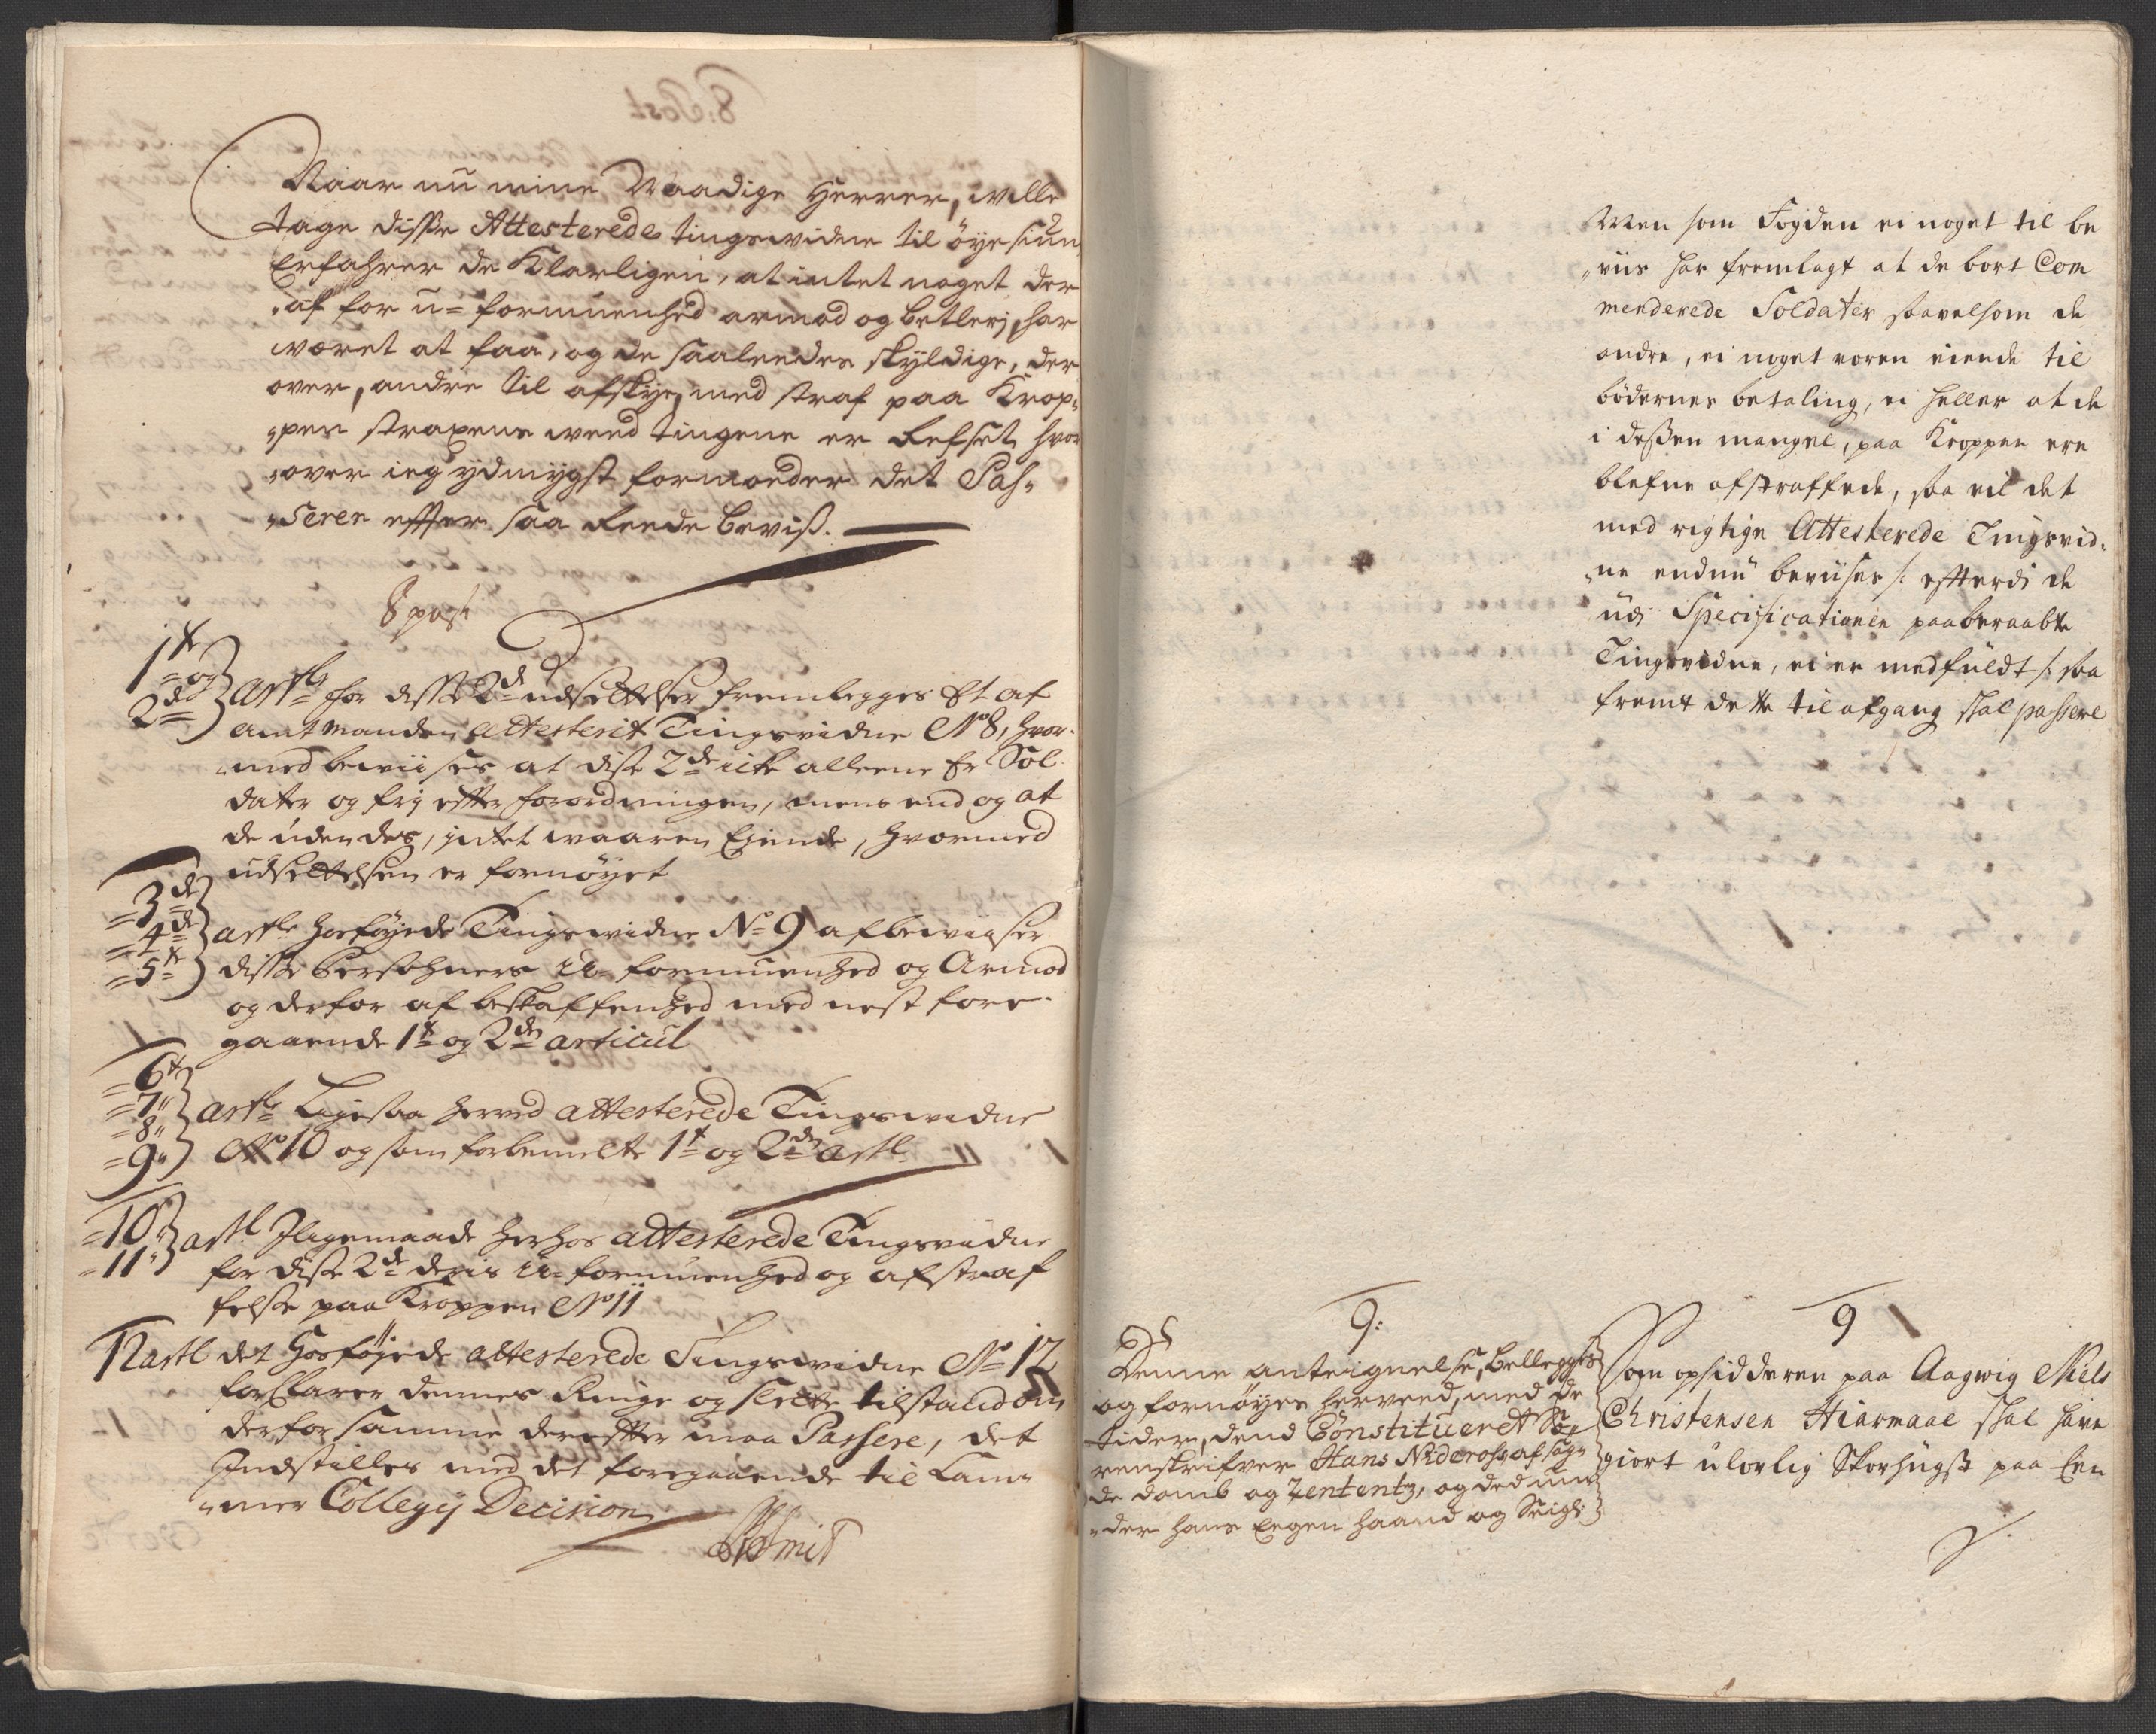 Naar nu mine Naadige Herrer, wille
tage disse Attesterede tingswidne til øyesiun
Erfahrer de Klarligen, at intet noget der
"af for u=formuenhed armod og betlerj, har
wæret at faa, og de saaleedes skyldige, der
over, andre til afskye, med straf paa Krop"
"pen straxens weed tingene er Refset, hvor
"over ieg ydmygst formoeder det Pas"
"seren effter saa Reede beviß.
8 post
1t og 2de artlr for disse 2de udsettelser fremlegges Et af
amtmanden attesterit Tingsvidne No 8, hvor"
"med beviises at disse 2de icke alleene Er Sol
dater og frj effter forordningen, mens end og at
de uden des, intet waaren Ejende, hvormed
udsettelsen er fornøyet
=3de =4de =5te artlr hosføyede Tingswidne No 9 afbewiiser
disse Persohners u=formuenhed og Armod
og derfor af beskaffenhed med nest fore"
gaaende 1t og 2den articul
=6t =7" =8" =9" artlr Ligesaa herved attesterede Tingswidne
No 10 og som forbemelte 1t og 2den artl
=10" =11" artl Jligemaade herhos attesterede Tingsvidne
for disse 2de deris u=formuenhed og afstraf
felse paa Kroppen No 11
12 artl det hosføyede attesterede Tingswidne No 12
forklarer dennes Ringe og slette tilstand om
derfor samme dereffter maa Passere, det
Indstilles med det foregaaende til Cam"
"mer Collegij Decision
Smit
Men som Fogden ei noget til be
"viis har fremlagt at de bort Com
menderede Soldater saavelsom de
andre, ei noget voren eiende til
bødernes betaling, ei heller at de
i deßen mangel, paa Kroppen ere
blefne afstraffede, saa vil det
med rigtige Attesterede Tingsvid"
"ne endnu beviises /: effterdj de
udj Specificationen paaberaabte
Tingsvidne, ei er medfuldt :/ saa
fremt dette til afgang skal passere
9:
Denne anteignelse, bellegges
og fornøyes herveed, med de
tider, dend Constitueret So
renskrifver Hans Nideros, afsag"
de domb og Zententz, og ded un
"der hans Eegen haand og Seigl:
9
Som opsidderen paa Aagwig Niels
Christensen Hiarmaae skal have
giort ulovlig Skovhugst paa Een